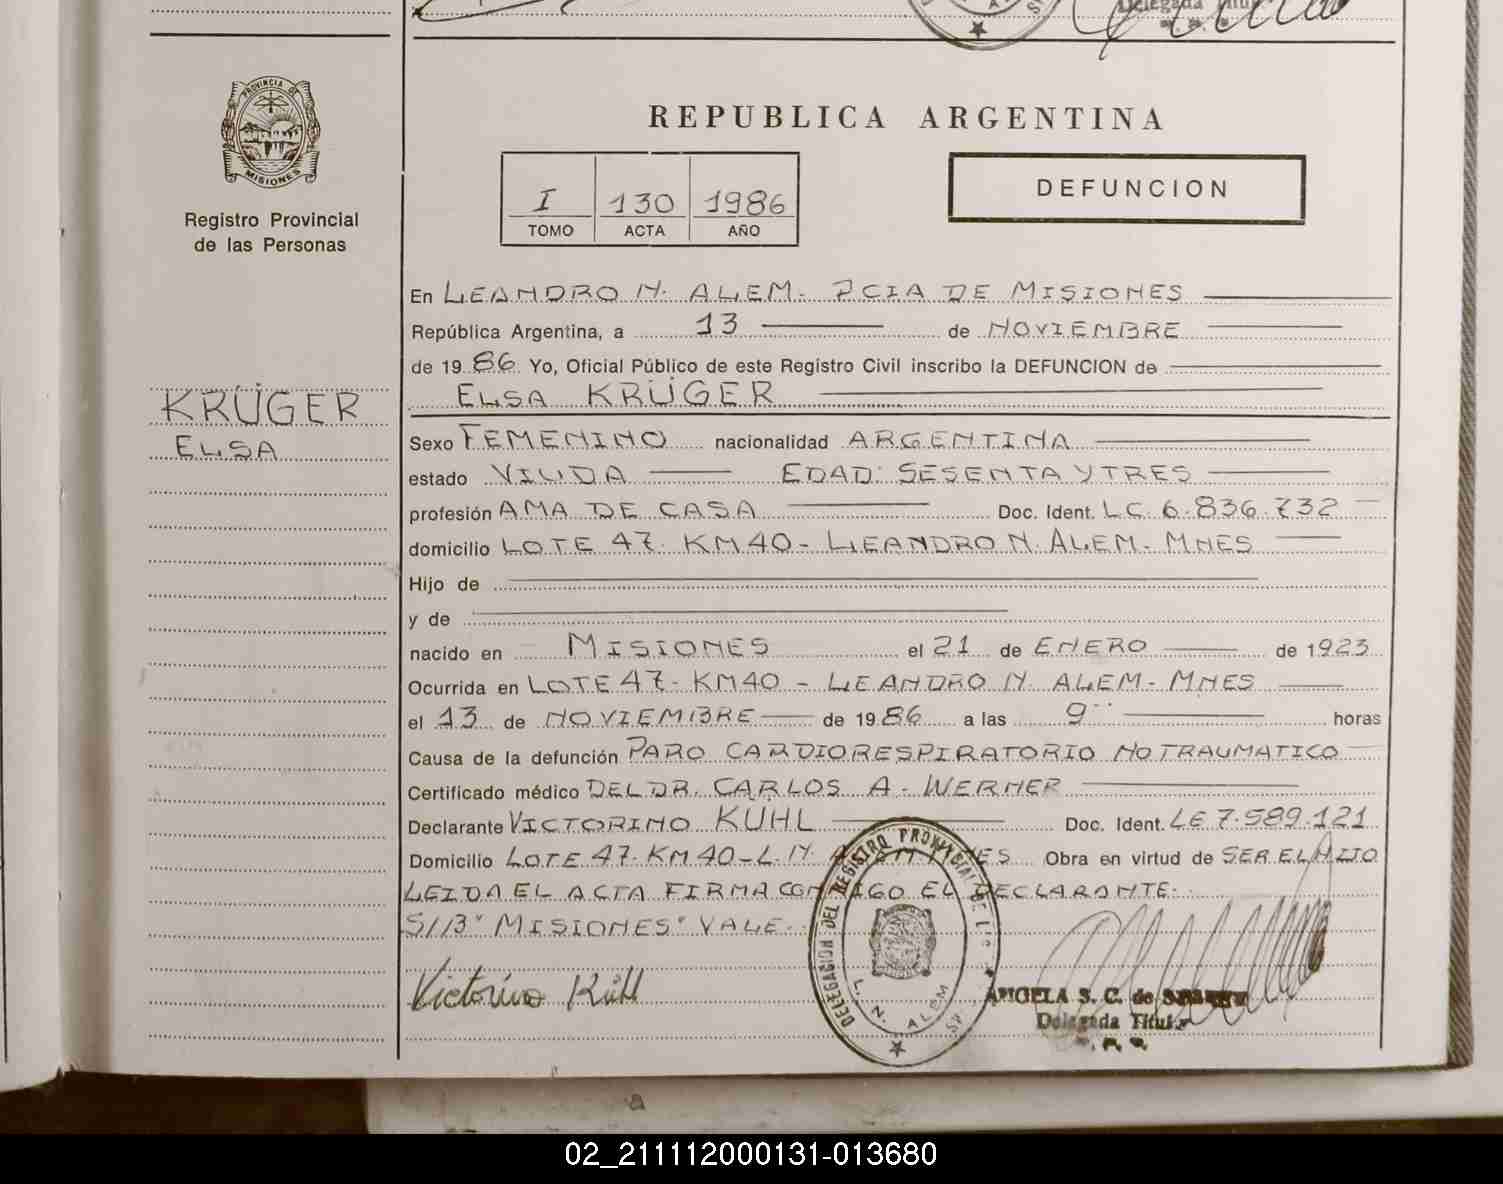 Delegada Titular
PROVINCIA DE
MISIONES
Registro Provincial
de las Personas
REPUBLICA ARGENTINA
I 130 1986
TOMO ACTA AÑO
DEFUNCION
En LEANDRO N. ALEM - PCIA DE MISIONES
República Argentina, a 13 de NOVIEMBRE
de 19 86 Yo, Oficial Público de este Registro Civil inscribo la DEFUNCION de
ELSA KRÜGER
KRÜGER
ELSA
Sexo FEMENINO nacionalidad ARGENTINA
estado VIUDA EDAD: SESENTA Y TRES
profesión AMA DE CASA Doc. Ident. LC. 6.836.732
domicilio LOTE 47. KM 40 - LEANDRO N. ALEM - MNES
Hijo de
y de
nacido en MISIONES el 21 de ENERO de 1923
Ocurrida en LOTE 47 - KM 40 - LEANDRO N. ALEM - MNES
el 13 de NOVIEMBRE de 19 86 a las 9 horas
Causa de la defunción PARO CARDIORESPIRATORIO NO TRAUMATICO
Certificado médico DEL DR. CARLOS A. WERNER
Declarante VICTORINO KUHL Doc. Ident. LE 7.589.121
Domicilio LOTE 47. KM 40 - L. N. Obra en virtud de SER EL HIJO
LEIDA EL ACTA FIRMA CONMIGO EL DECLARANTE.
S//B "MISIONES" VALE.
Victorino Kühl
DELEGACION DEL REGISTRO PROVINCIAL DE L
L. N. ALEM
ANGELA S. C. de
Delegada Titular
02_211112000131-013680